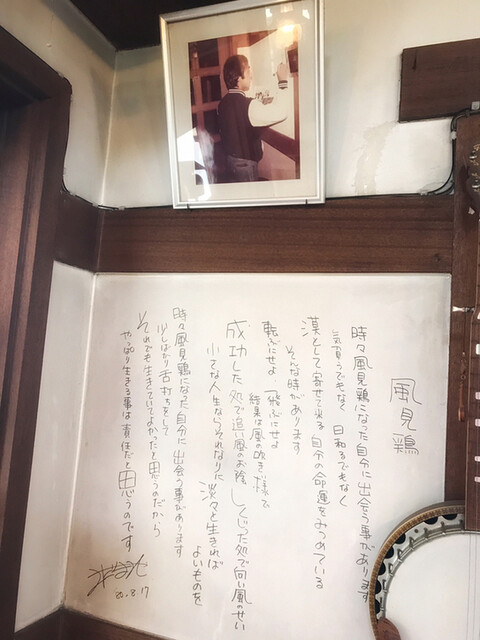 風見鶏
時々風見鶏になった自分に出会う事があります
気負うでもなく 日和るでもなく
漠として寄せて来る 自分の命運をみつめている
そんな時があります
転ぶにせよ 飛ぶにせよ
結果は風の吹き様で
成功した処で追い風のお陰 しくじった処で向い風のせい
小さな人生ならそれなりに 淡々と生きれば
よいものを
時々風見鶏になった自分に出会う事があります
少しばかり舌打ちをして
それでも生きていてよかったと思うのだから
やっぱり生きる事は責任だと思うのです